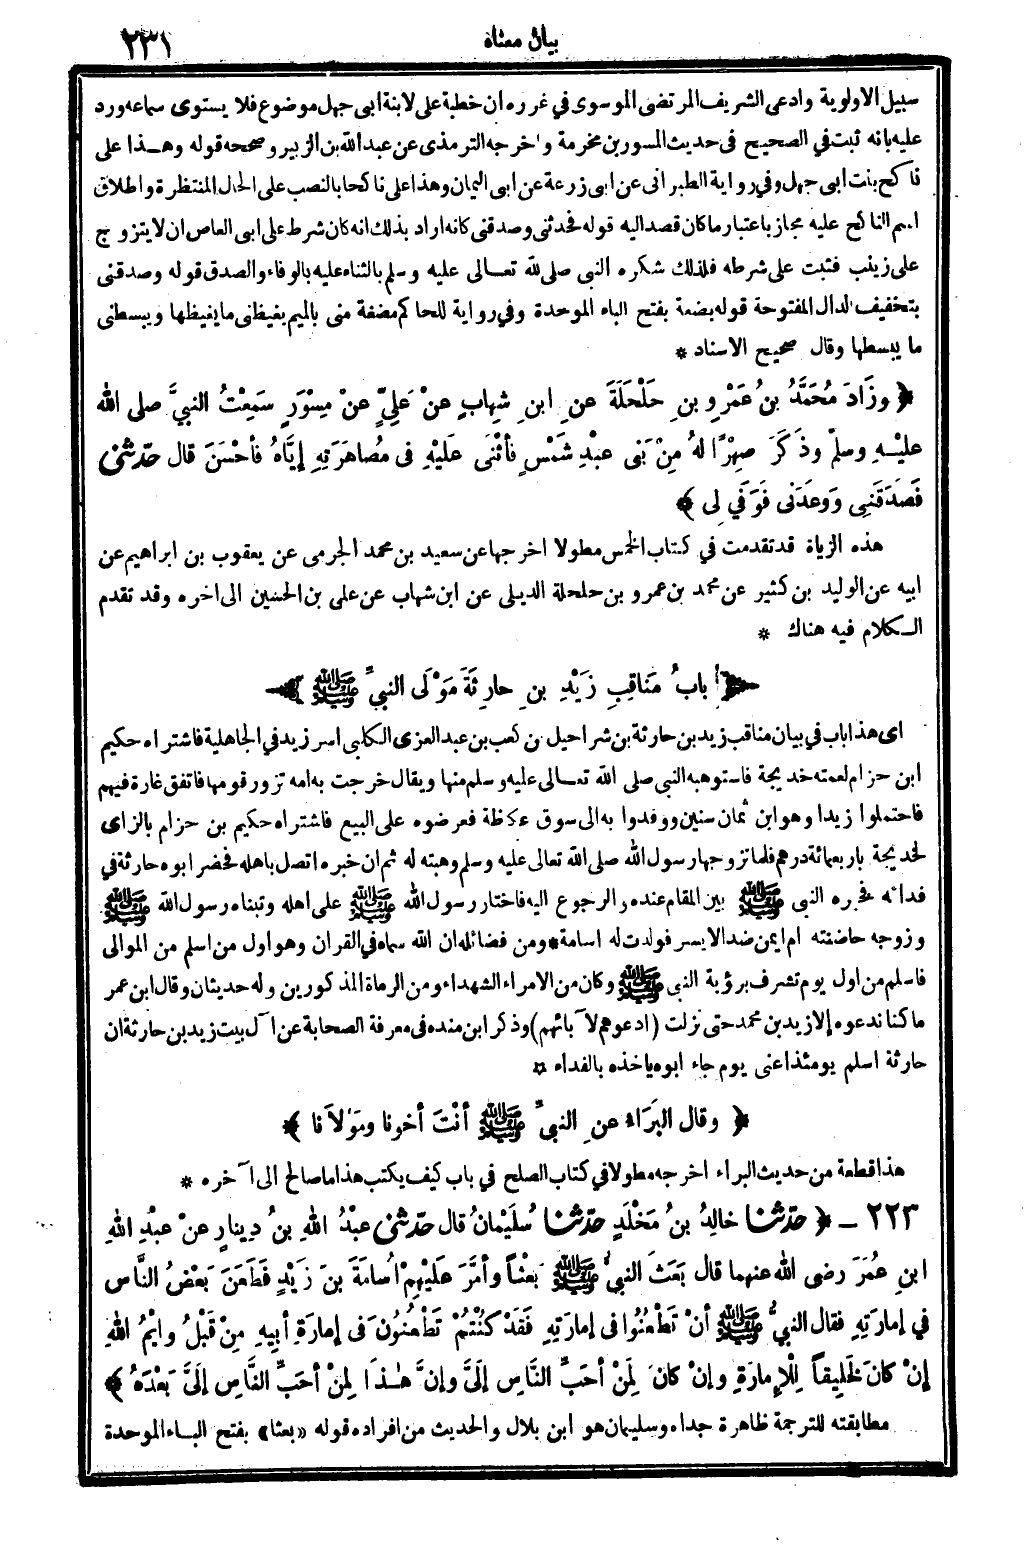 بيان معناه
٢٣١
سبيل الاولوية وادعى الشريف المرتضى الموسوى في غرره ان خطبة على لابنة ابى جهل موضوع فلا يستوى سماعه ورد
عليه بانه ثبت في الصحيح فى حديث المسور بن مخرمة واخرجه الترمذى عن عبد الله بن الزبير وصححه قوله وهذا على
ناكح بنات ابى جهل وفي رواية الطبرانى عن ابى زرعة عن ابى اليمان وهذا على ناكحا بالنصب على الحال المنتظرة واطلاق
اسم الناكح عليه مجاز باعتبار ما كان قصد اليه قوله فحدثنى وصدقنى كانه اراد بذلك انه كان شرط على ابى العاص ان لا يتزوج
على زينب فثبت على شرطه فلذلك شكره النبى صلى لله تعالى عليه وسلم بالثناء عليه بالوفاء والصدق قوله وصدقنى
بتخفيف الدال المفتوحة قوله بضعة بفتح الباء الموحدة وفي رواية للحاكم مضغة منى بالميم يغيظنى ما يغيظها ويبسطنى
ما يبسطها وقال صحيح الاسناد *
﴿ وزَادَ مُحَمَّدُ بنُ عَمْرِو بنِ حَلْحَلَةَ عنِ ابنِ شِهابٍ عنْ عَلِيٍّ عنْ مِسْوَرٍ سَمِعْتُ النبيَّ صلى الله
عليْهِ وسلَّم وذَكَرَ صِهْرًا لهُ مِنْ بَنى عبْدِ شَمْسٍ فأثْنَى عَلَيْهِ فى مُصاهَرَتِهِ إيَّاهُ فأحْسَنَ قال حدَّثنى
فَصَدَقَنِى وَوعَدَنى فَوَفَي لِى ﴾
هذه الزياة قد تقدمت في كتاب الخمس مطولا اخرجها عن سعيد بن محمد الجرمى عن يعقوب بن ابراهيم عن
ابيه عن الوليد بن كثير عن محمد بن عمرو بن حلحلة الديلى عن ابن شهاب عن على بن الحسين الى اخره وقد تقدم
الكلام فيه هناك *
﴿ بابُ مَناقِبِ زَيْدِ بنِ حارِثَةَ مَوْلَى النبيِّ ﷺ ﴾
اى هذا باب في بيان مناقب زيد بن حارثة بن شراحيل بن كعب بن عبد العزى الكلبى اسر زيد في الجاهلية فاشتراه حكيم
ابن حزام لعمته خديجة فاستوهبه النبى صلى الله تعالى عليه وسلم منها ويقال خرجت به امه تزور قومها فاتفق غارة فيهم
فاحتملوا زيدا وهو ابن ثمان سنين ووفدوا به الى سوق عكاظة فعرضوه على البيع فاشتراه حكيم بن حزام بالزاى
لخديجة باربعمائة درهم فلما تزوجها رسول الله صلى الله تعالى عليه وسلم وهبته له ثم ان خبره اتصل باهله فحضر ابوه حارثة في
فدائه فخيره النبى ﷺ بين المقام عنده والرجوع اليه فاختار رسول الله ﷺ على اهله وتبناه رسول الله ﷺ
وزوجه حاضنته ام ايمن ضد الايسر فولدت له اسامة * ومن فضائله ان الله سماه في القران وهو اول من اسلم من الموالى
فاسلم من اول يوم تشرف برؤية النبى ﷺ وكان من الامراء الشهداء ومن الرماة المذكورين وله حديثان وقال ابن عمر
ما كنا ندعوه إلا زيد بن محمد حتى نزلت (ادعوهم لآبائهم) وذكر ابن منده فى معرفة الصحابة عن آل بيت زيد بن حارثة ان
حارثة اسلم يومئذ اعنى يوم جاء ابوه ياخذه بالفداء *
﴿ وقال البَرَاءُ عنِ النبيِّ ﷺ أنْتَ أخونا ومَوْلاَنا ﴾
هذا قطعة من حديث البراء اخرجه مطولا في كتاب الصلح في باب كيف يكتب هذا ما صالح الى آخره *
٢٢٣ ــ ﴿ حدّثنا خالِدُ بنُ مَخْلَدٍ حدّثنا سُلَيْمانُ قال حدّثنى عبْدُ اللهِ بنُ دِينارٍ عنْ عبْدِ اللهِ
ابنِ عُمَرَ رضى الله عنهما قال بَعَثَ النبيُّ ﷺ بَعْثاً وأمَّرَ عَلَيْهِمْ أُسامَةَ بنَ زَيْدٍ فَطَعَنَ بَعْضُ النَّاسِ
في إمارَتِهِ فقال النبيُّ ﷺ أنْ تَطْعُنُوا فى إمارَتِهِ فَقَدْ كُنْتُمْ تَطْعُنُونَ فى إمارَةِ أبِيهِ مِنْ قَبْلُ وايْمُ اللهِ
إنْ كانَ لَخَلِيقاً لِلْإِمارَةِ وإنْ كانَ لَمِنْ أحَبِّ النَّاسِ إلَىَّ وإنَّ هٰذَا لِمنْ أحَبِّ النَّاسِ إلَىَّ بَعْدَهُ ﴾
مطابقته للترجمة ظاهرة جداء وسليمان هو ابن بلال والحديث من افراده قوله «بعثا» بفتح الباء الموحدة